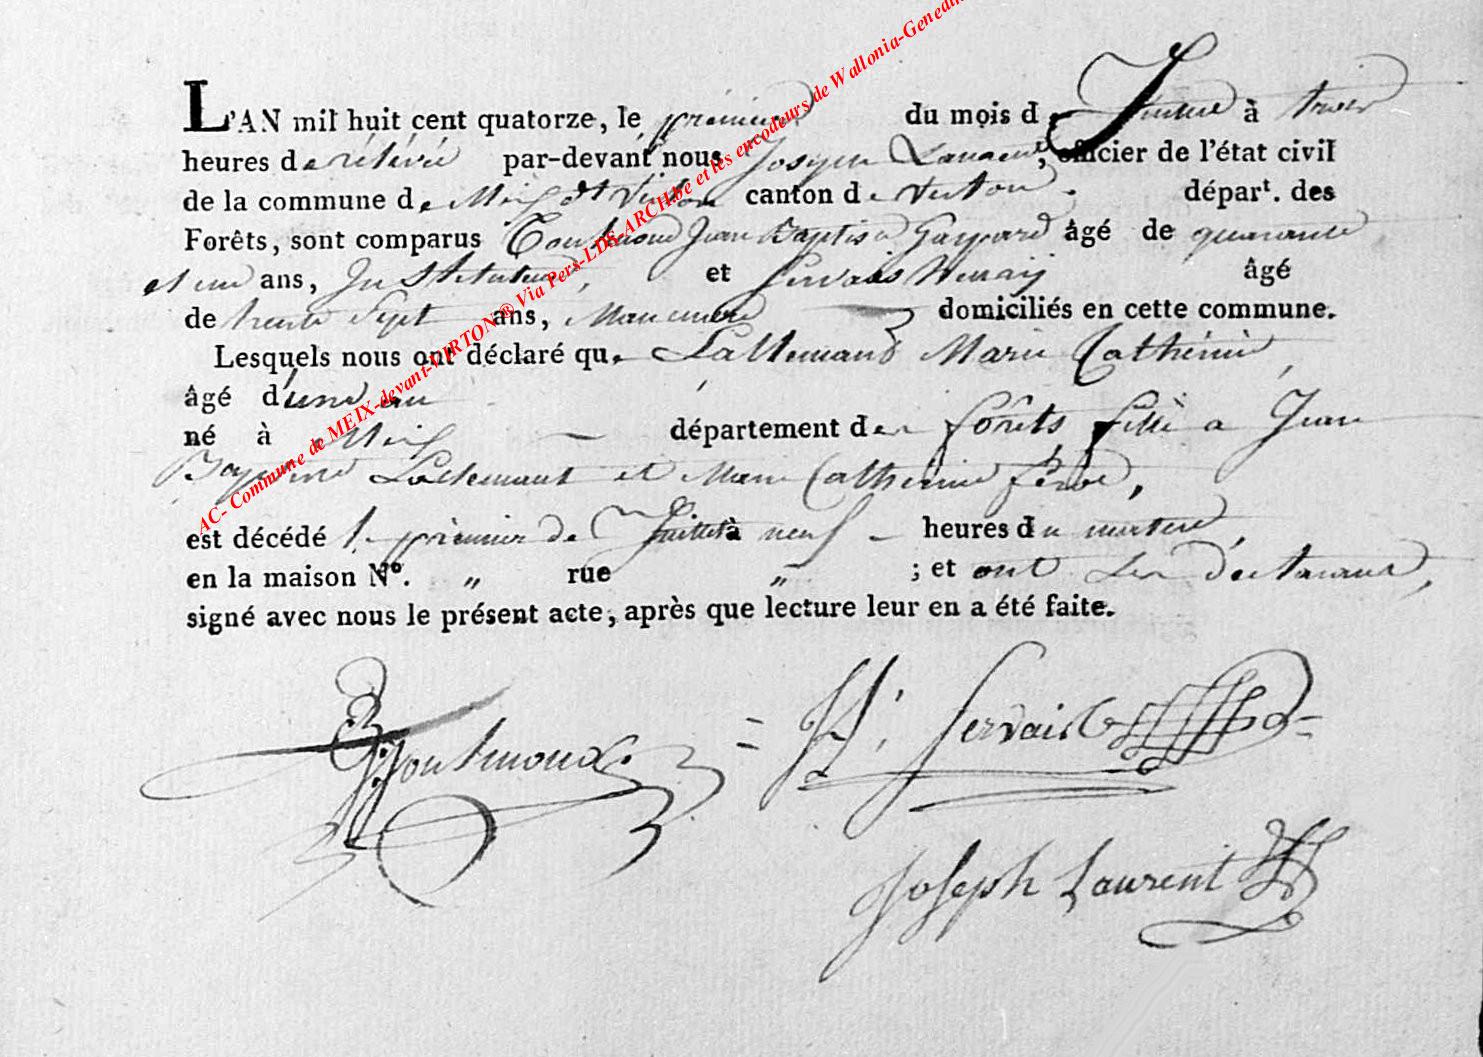 L'AN mil huit cent quatorze, le premier du mois de Juillet à trois
heures de rélévée par-devant nous Joseph Laurent, officier de l'état civil
de la commune de Meix dt Virton canton de Virton. départ. des
Forêts, sont comparus Jean Baptiste Gaspard âgé de quarante
et un ans, Instituteur, et Servais Henry âgé
de trente sept ans, domiciliés en cette commune.
Lesquels nous ont déclaré que Lallemand Marie Catherine,
âgé d'une an
né à Meix département des forêts, fille a Jean
Baptiste Lallemand et Marie Catherine
est décédé le premier de Juillet à neuf heures du matin,
en la maison N°. " rue " ; et ont les déclarans,
signé avec nous le présent acte, après que lecture leur en a été faite.
H. Servais
Joseph Laurent
AC- Commune de MEIX-devant-VIRTON ® Via Pers-LDS-ARCH.be et les encodeurs de Wallonia-Geneain